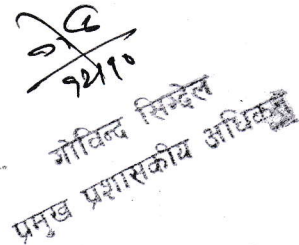 १२।१०
गोविन्द सिग्देल
प्रमुख प्रशासकीय अधिकृत